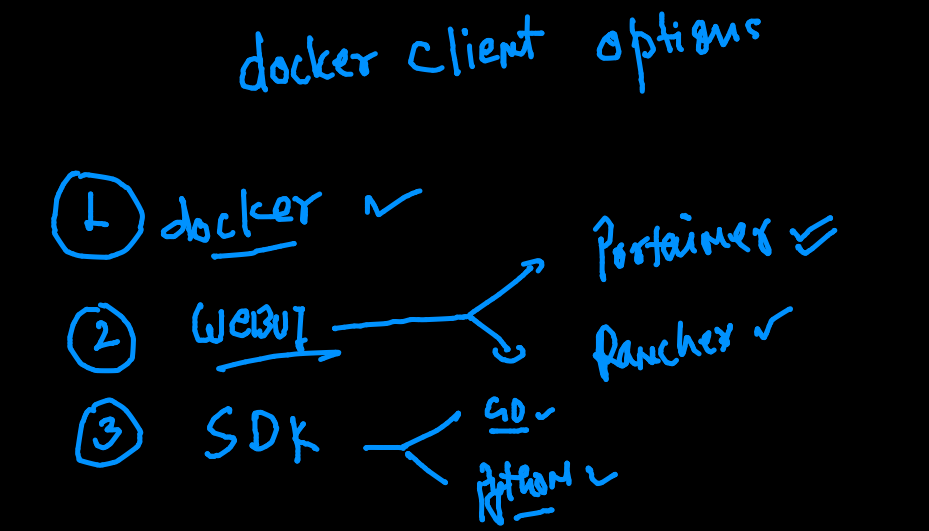 docker client options
1 docker
2 WeBUI
Portainer
Rancher
3 SDK
GO
Python